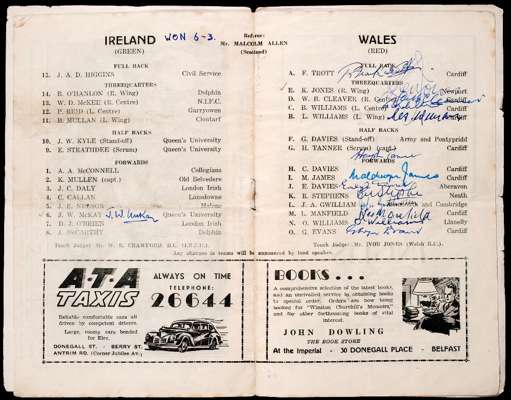 IRELAND WON 6-3.
(GREEN)
Referee:
Mr. MALCOLM ALLEN
(Scotland)
WALES
(RED)
FULL BACK
15. J. A. D. HIGGINS Civil Service
THREEQUARTERS
14. B. O'HANLON (R. Wing) Dolphin
13. W. D. McKEE (R. Centre) N.I.F.C.
12. P. REID (L. Centre) Garryowen
11. B. MULLAN (L. Wing) Clontarf
HALF BACKS
10. J. W. KYLE (Stand-off) Queen's University
9. E. STRATHDEE (Serum) Queen's University
FORWARDS
1. A. A. McCONNELL Collegians
2. K. MULLEN (capt.) Old Belvedere
3. J. C. DALY London Irish
4. C. CALLAN Lansdowne
5. J. E. NELSON Malone
6. J. W. McKAY J. W. McKay Queen's University
7. D. J. O'BRIEN London Irish
8. A. McCARTHY Dolphin
Touch Judge:
FULL BACK
A. F. TROTT Cardiff
THREEQUARTERS
E. K. JONES (R. Wing) Newport
D. W. B. CLEAVER (R. Centre) Cardiff
C. B. WILLIAMS (L. Centre) Cardiff
B. L. WILLIAMS (L. Wing) Les Williams Cardiff
HALF BACKS
F. G. DAVIES (Stand-off) Army and Pontypridd
G. H. TANNER (Scrum) (capt.) Cardiff
Haydn Tanner
FORWARDS
H. C. DAVIES Cardiff
I. M. JAMES Maldwyn James Cardiff
J. E. DAVIES Aberavon
K. R. STEPHENS Neath
L. J. A. GWILLIAM Cambridge
M. L. MANFIELD Les Manfield Cardiff
N. O. WILLIAMS O. Williams Llanelly
O. G. EVANS Gwyn Evans Cardiff
Touch Judge: Mr. IVOR JONES (Welsh R.U.)
Any changes in teams will be announced by loud speaker.
A·T·A
TAXIS
ALWAYS ON TIME
TELEPHONE:
26644
Reliable comfortable cars all
driven by competent drivers.
Large, roomy cars heated
for Hire.
DONEGALL ST. - BERRY ST.
ANTRIM RD. (Corner Jubilee Av.)
BOOKS . . .
A comprehensive selection of the latest books,
and an unrivalled service by obtaining books
to special order. Orders are now being
booked for "Winston Churchill's Memoirs,"
and for other forthcoming books of vital
interest.
JOHN DOWLING
THE BOOK STORE
At the Imperial - 30 DONEGALL PLACE - BELFAST